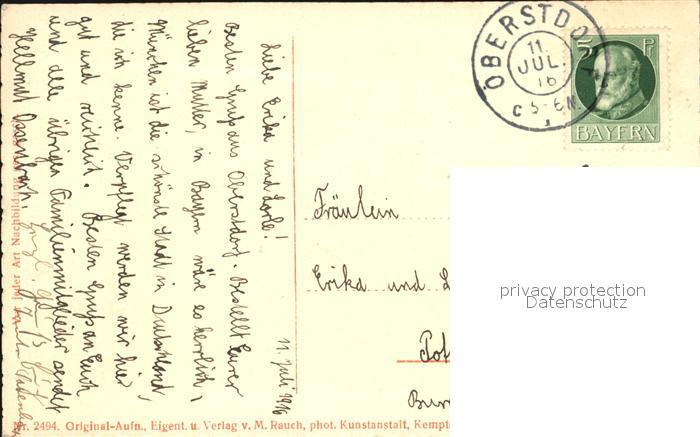 11. Juli 1916
Liebe Erika und Lorle!
Besten Gruss aus Oberstdorf. Bestellt Eurer
lieben Mutter, in Bayern wäre es herrlich,
München ist die schönste Stadt in Deutschland,
die ich kenne. Verpflegt werden wir hier
gut und reichlich. Besten Gruss an Euch
und alle übrigen Familienmitglieder sendet
Hellmut
OBERSTDO
11.
JUL.
16
C 5-6 N.
5 P
BAYERN
Fräulein
Erika und L
Pot
Bur
privacy protection
Datenschutz
Nr. 2494. Original-Aufn., Eigent. u. Verlag v. M. Rauch, phot. Kunstanstalt, Kempt
jeder Art Nachbildung